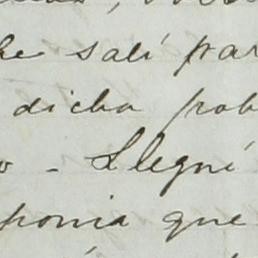 he salí par
dicha pob
o - Llegué
ponia que